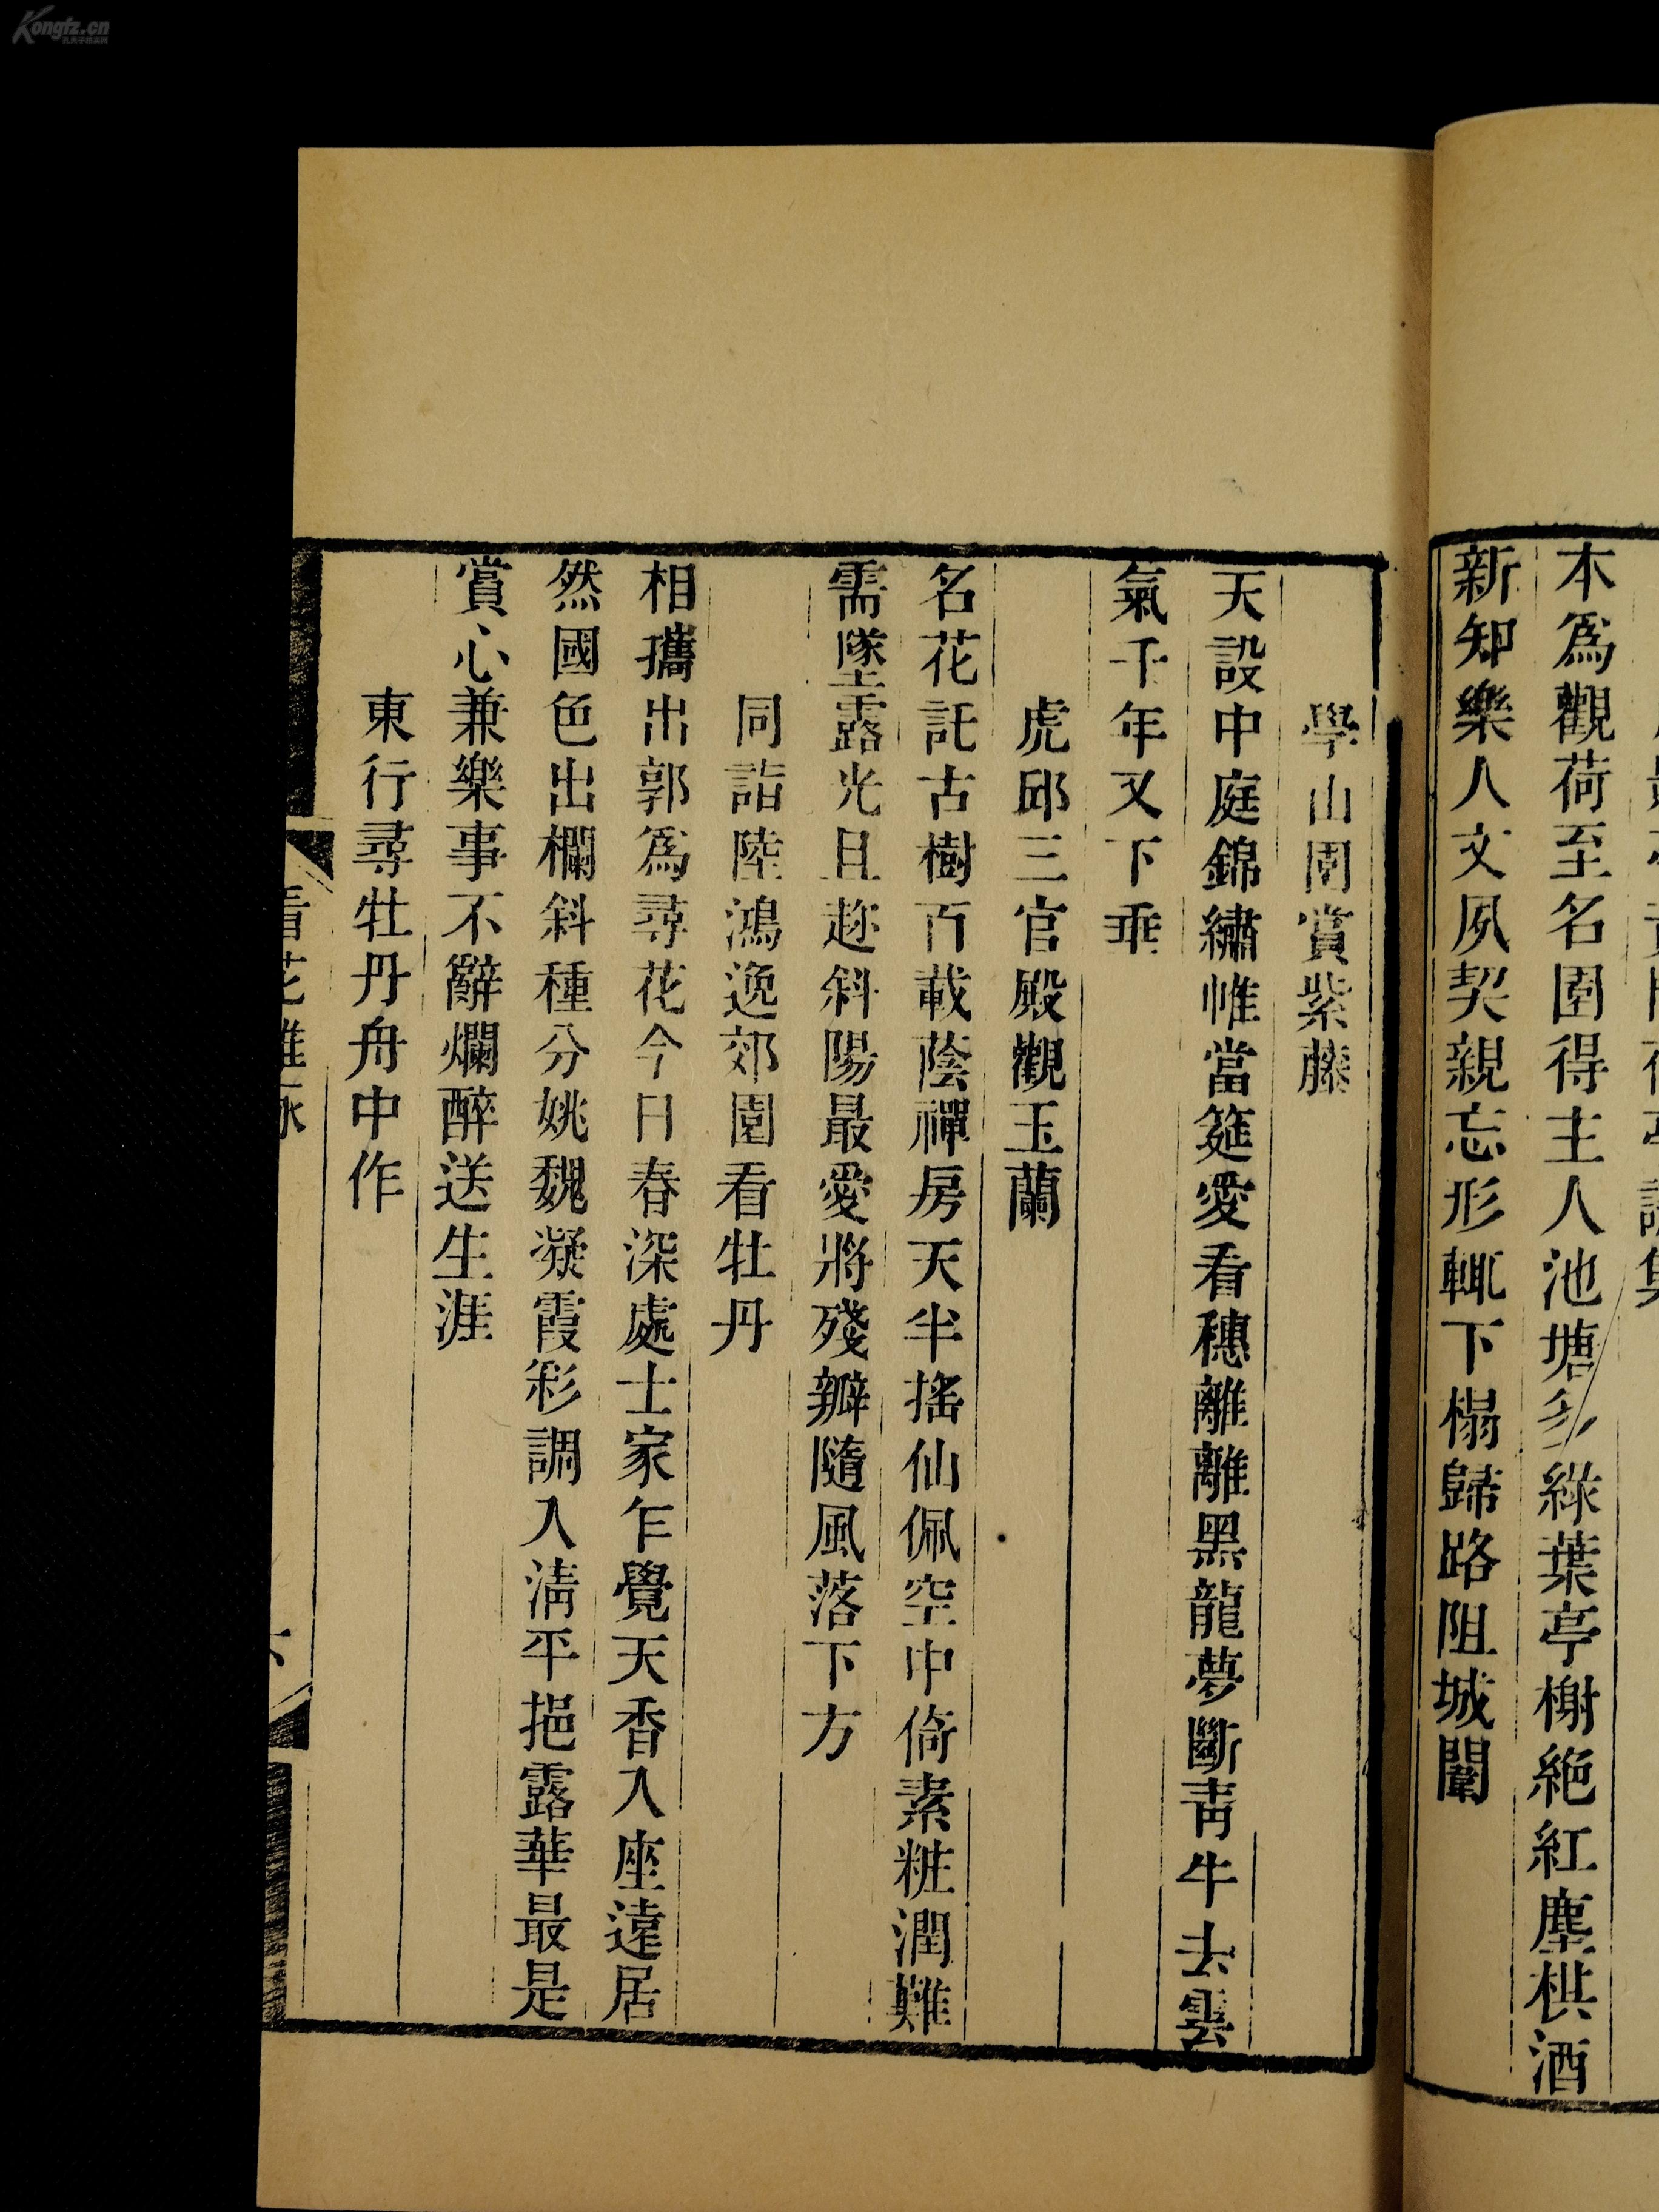 本爲觀荷至名園得主人池塘多綠葉亭榭絶紅塵棋酒
新知樂人文夙契親忘形輒下榻歸路阻城闉
學山園賞紫藤
天設中庭錦繡帷當筵愛看穗離離黑龍夢斷靑牛去雲
氣千年又下垂
虎邱三官殿觀玉蘭
名花託古樹百載蔭禪房天半搖仙佩空中倚素粧潤難
需墜露光且趂斜陽最愛將殘瓣隨風落下方
同詣陸鴻逸郊園看牡丹
相攜出郭爲尋花今日春深處士家乍覺天香入座遠居
然國色出欄斜種分姚魏凝霞彩調入淸平挹露華最是
賞心兼樂事不辭爛醉送生涯
東行尋牡丹舟中作
看花雜詠
Kongfz.cn